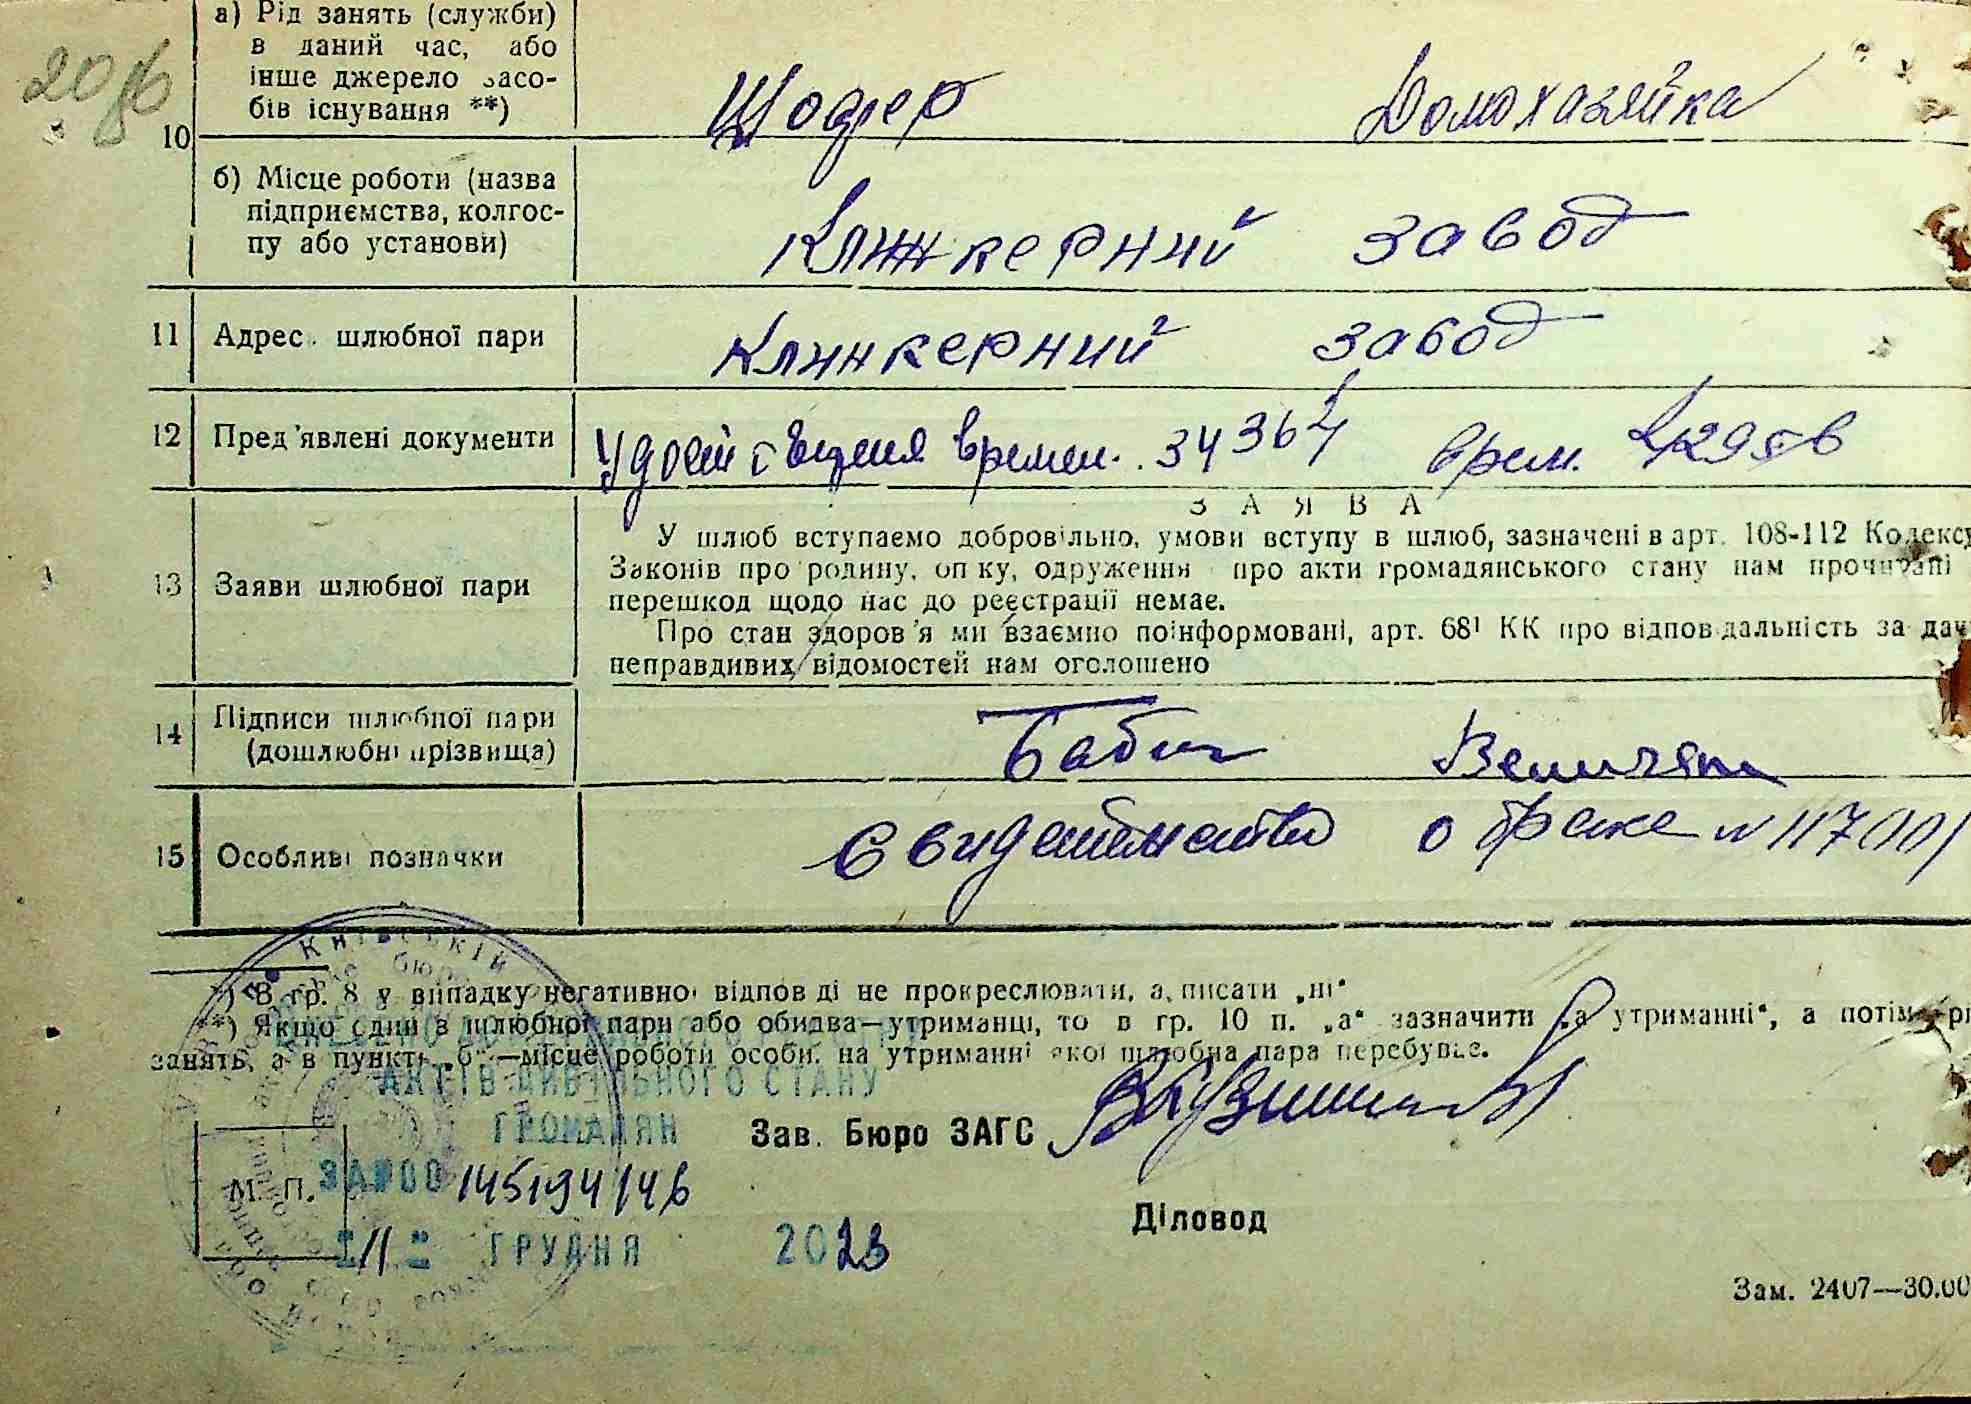 20
а) Рід занять (служби)
в даний час, або
інше джерело засо-
бів існування **)
Шофер Домохазяйка
10
б) Місце роботи (назва
підприємства, колгос-
пу або установи)
Клинкерний завод
11 Адрес шлюбної пари
Клинкерний завод
12 Пред'явлені документи
времен. 34364 врем.
ЗАЯВА
У шлюб вступаемо добровільно, умови вступу в шлюб, зазначені в арт. 108-112 Кодексу
Законів про родину, опіку, одруження про акти громадянського стану нам прочитані
перешкод щодо нас до реєстрації немає.
Про стан здоров'я ми взаємно поінформовані, арт. 68¹ КК про відповідальність за дач
неправдивих відомостей нам оголошено
13 Заяви шлюбної пари
14 Підписи шлюбної пари
(дошлюбні прізвища)
Бабич
15 Особливі позначки
свидетельство о браке N
*) В гр. 8 у випадку негативної відповіді не прокреслювати, а писати „ні"
**) Якщо один з шлюбної пари або обидва—утриманці, то в гр. 10 п. „а" зазначити „а утриманні", а потім рі
занять, а в пункті „б"—місце роботи особи, на утриманні якої шлюбна пара перебуває.
АКТІВ ЦИВІЛЬНОГО СТАНУ
ГРОМАДЯН
Зав. Бюро ЗАГС
М. П.
145194146
Діловод
11 ГРУДНЯ 2023
Зам. 2407—30.00